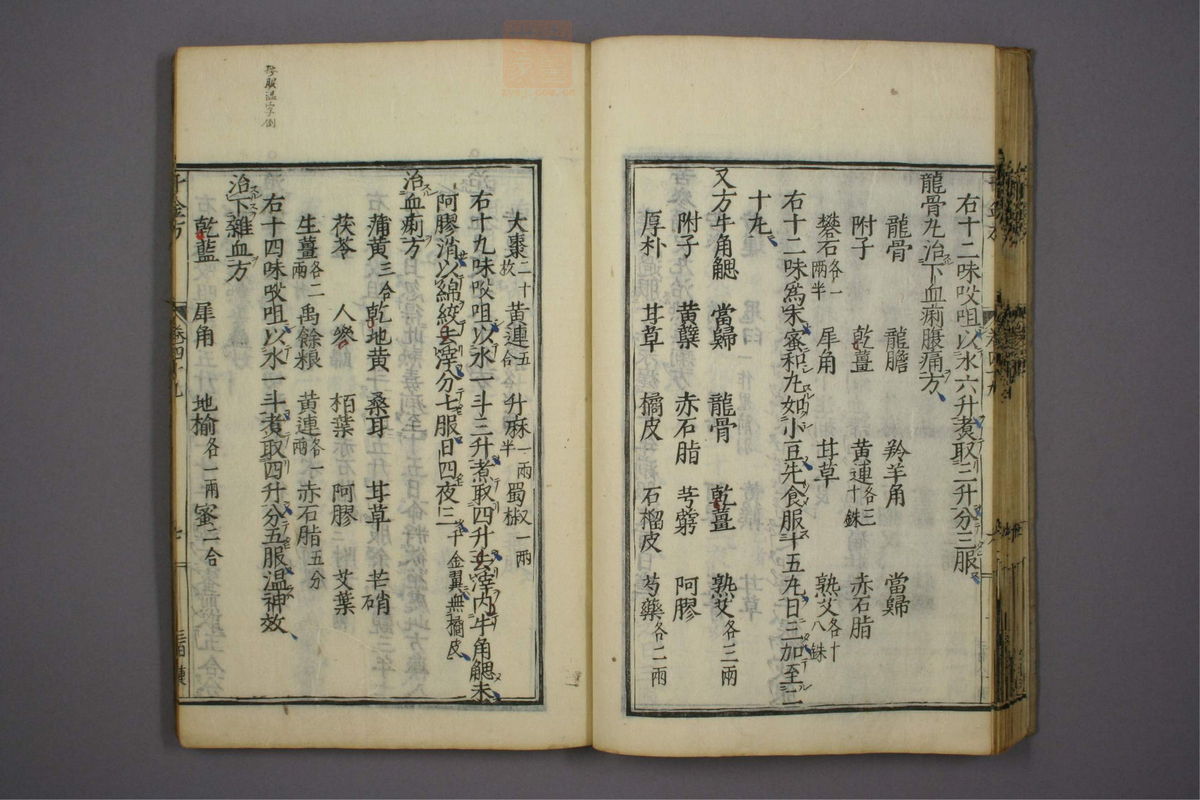 右十二味㕮咀以水六升煮取三升分三服
龍骨丸治下血痢腹痛方
龍骨 龍膽 羚羊角 當歸
附子 乾薑 黃連各三十銖 赤石脂
礬石各一兩半 犀角 甘草 熟艾各十八銖
右十二味爲末蜜和丸如小豆先食服十五丸日三加至二
十丸
又方牛角䚡 當歸 龍骨 乾薑 熟艾各三兩
附子 黃蘗 赤石脂 芎藭 阿膠
厚朴 甘草 橘皮 石榴皮 芍藥各二兩
大棗二十枚 黃連五合 升麻一兩半 蜀椒一兩
右十九味㕮咀以水一斗三升煮取四升去滓內牛角䚡末
阿膠消以綿絞去滓分七服日四夜三千金翼無橘皮
治血痢方
蒲黃三合 乾地黃 桑耳 甘草 芒硝
茯苓 人參 栢葉 阿膠 艾葉
生薑各二兩 禹餘粮 黃連各一兩 赤石脂五分
右十四味㕮咀以水一斗煮取四升分五服温神效
治下雜血方
乾藍 犀角 地榆各一兩 蜜二合
千金方 卷四十九 七